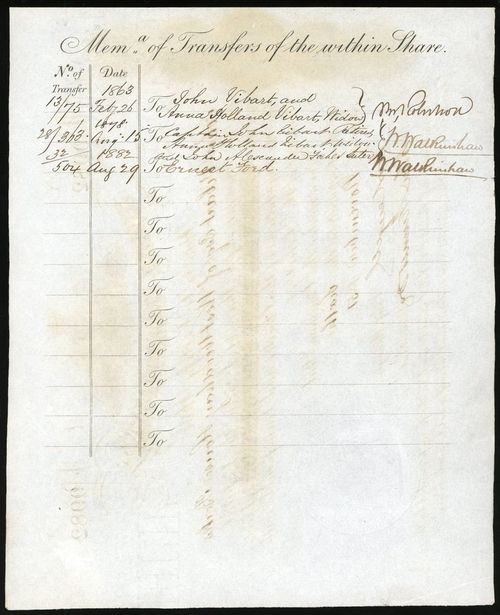 Mem.ª of Transfers of the within Share.
No. of Transfer Date
1863
13/75 Feb 26 To John Vibart, and
Anna Holland Vibart, Widow
1878
28/363 Aug 15 To Captain John Vibart
Anna Holland Vibart Widow
32 1882 and John Alexander
504 Aug 29 To Ernest Ford.
Wm Robertson
W Walkinshaw
W Walkinshaw
To
To
To
To
To
To
To
To
To